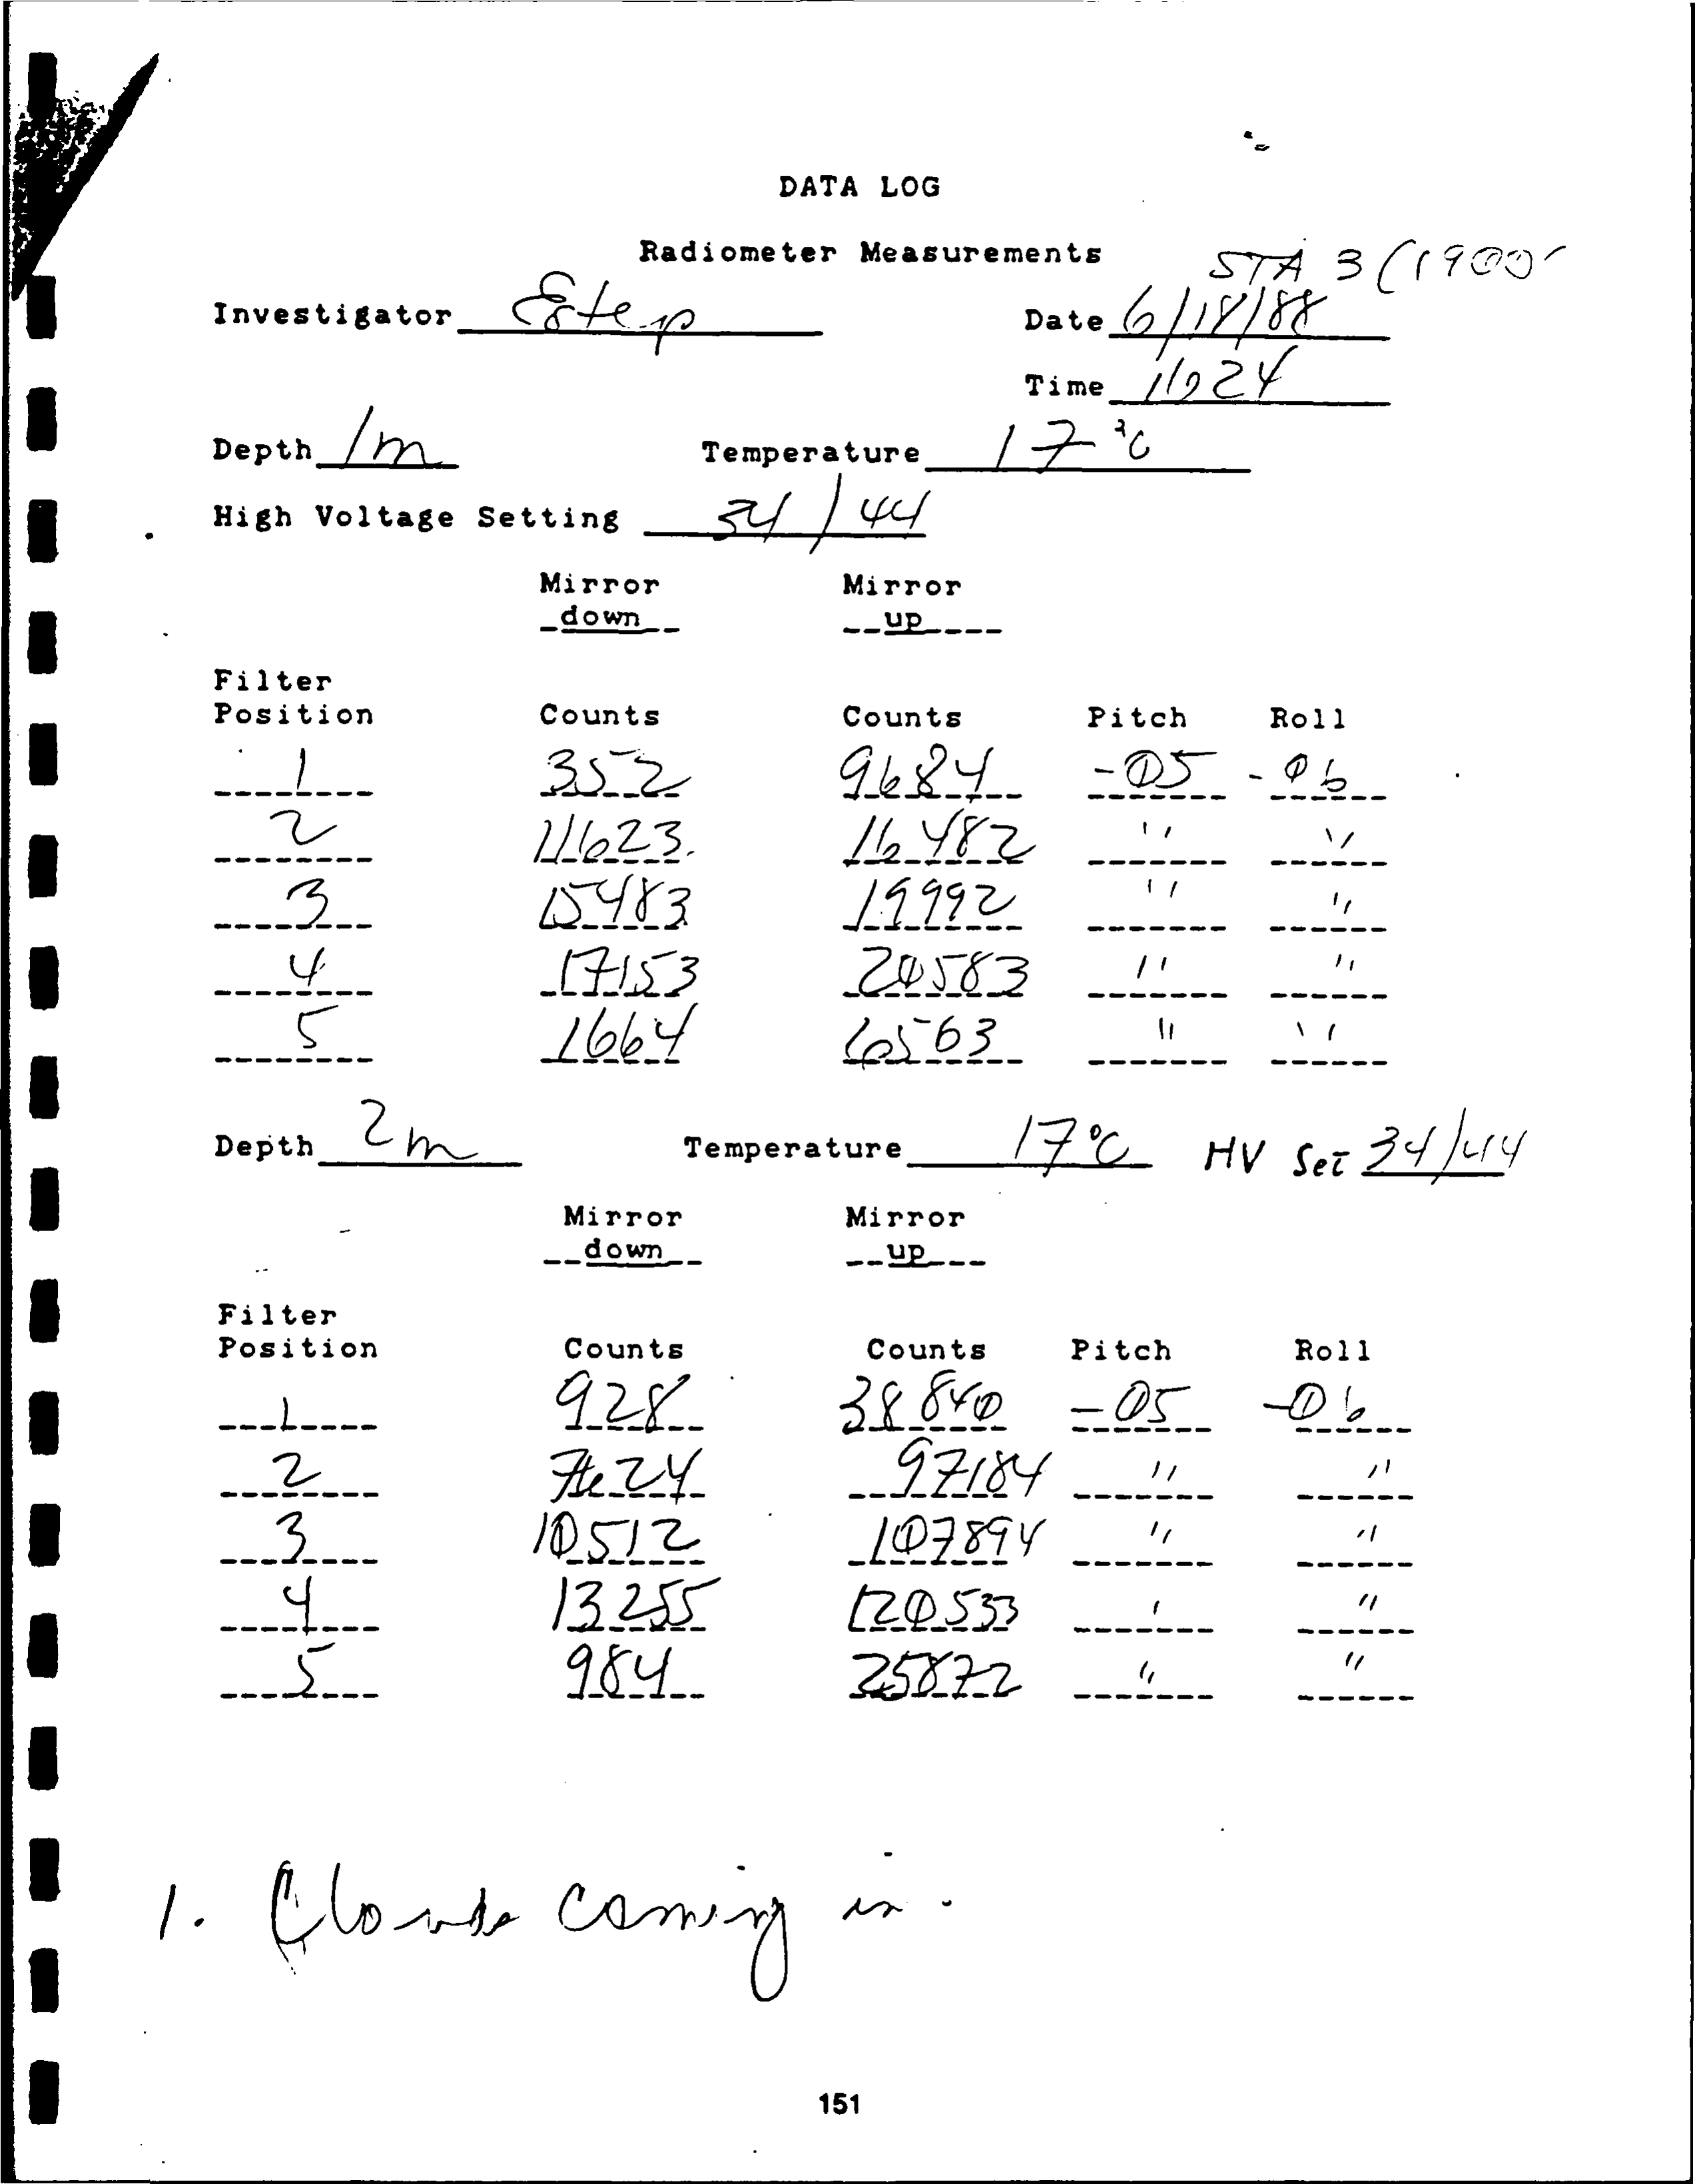 DATA LOG
Radiometer Measurements
STA 3 (1900
Investigator Estep Date 6/18/88
Time 1624
Depth 1m Temperature 17 °C
High Voltage Setting 34/44
Mirror Mirror
down up
Filter
Position Counts Counts Pitch Roll
1 352 9684 -05 -06
2 11623. 16482 " "
3 15483 19992 " "
4 17153 20583 " "
5 1664 6563 " "
Depth 2m Temperature 17°C HV Set 34/44
Mirror Mirror
down up
Filter
Position Counts Counts Pitch Roll
1 928 38840 -05 -06
2 7624 97184 " "
3 10512 107894 " "
4 13255 120533 ' "
5 984 25872 " "
1. Clouds coming in.
151